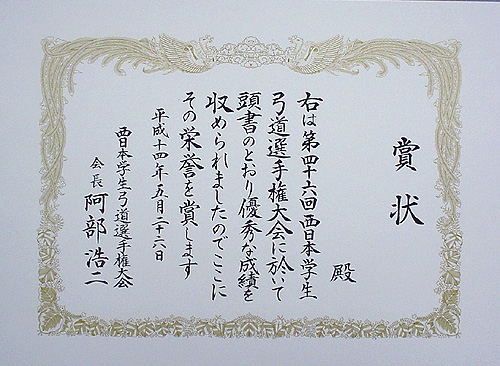 賞状
殿
右は第四十六回西日本学生
弓道選手権大会に於いて
頭書のとおり優秀な成績を
収められましたのでここに
その栄誉を賞します
平成十四年五月二十六日
西日本学生弓道選手権大会
会長 阿部浩二